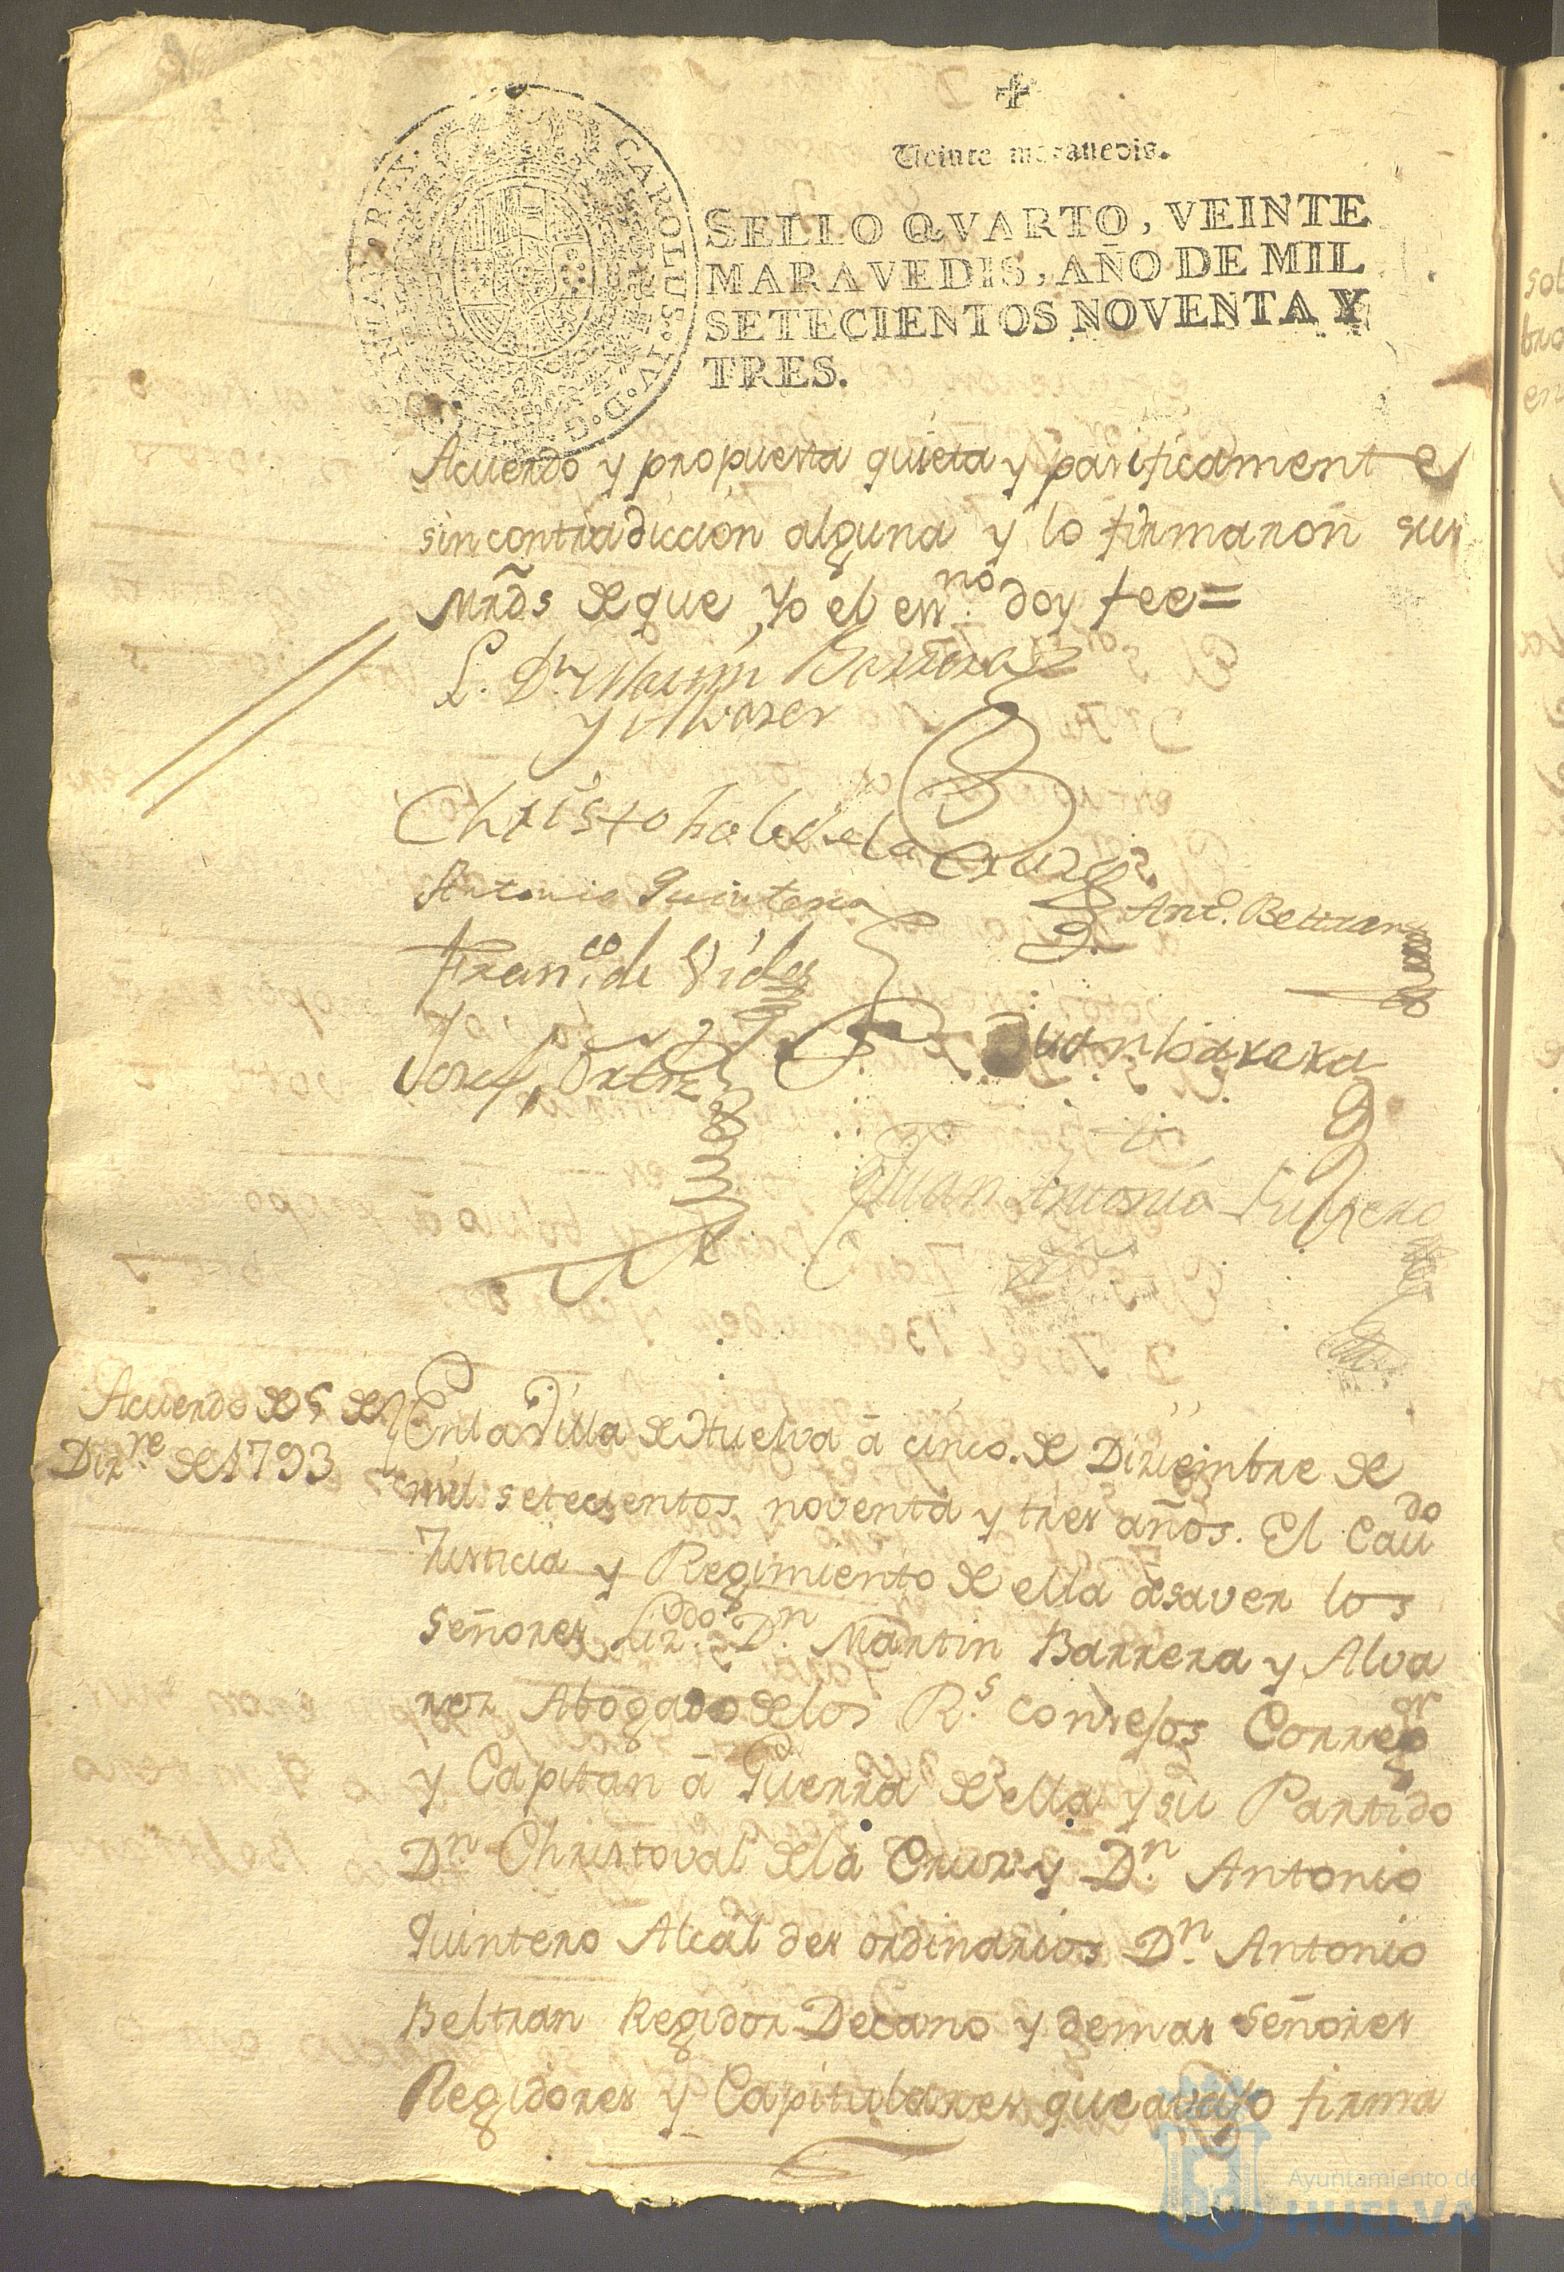 Veinte maravedis.
SELLO QVARTO, VEINTE
MARAVEDIS, AÑO DE MIL
SETECIENTOS NOVENTA Y
TRES.
CAROLUS. IV. D. G. HISPANIAR. REX.
Acuerdo y propuesta quieta y pasificament e
sin contradiccion alguna y lo firmaron sus
Mrds de que, Yo el essno. doy fee=
L. Dn. Martin Barrera
y Alvarez
Christobal de la Cruz
Antonio Quintero
Anto. Beltran
Franco. de Vides
Josef Ortiz
Juan barrera
Juan Antonio
Acuerdo de 5 de
Dizre. de 1793
En la Villa de Huelva â cinco. de Diziembre de
mil setecientos noventa y tres años. El Cavdo
Justicia y Regimiento de ella asaver los
Señores Lizdo. Dn. Martin Barrera y Alva
rez Abogado de los Rs. Consejos Corregor
y Capitan â Guerra de ella y su Partido
Dn. Christoval de la Cruz y Dn. Antonio
Quintero Alcaldes ordinarios Dn. Antonio
Beltran Regidor Decano y demas Señores
Regidores y Capitulares que avajo firma
Ayuntamiento de
HUELVA